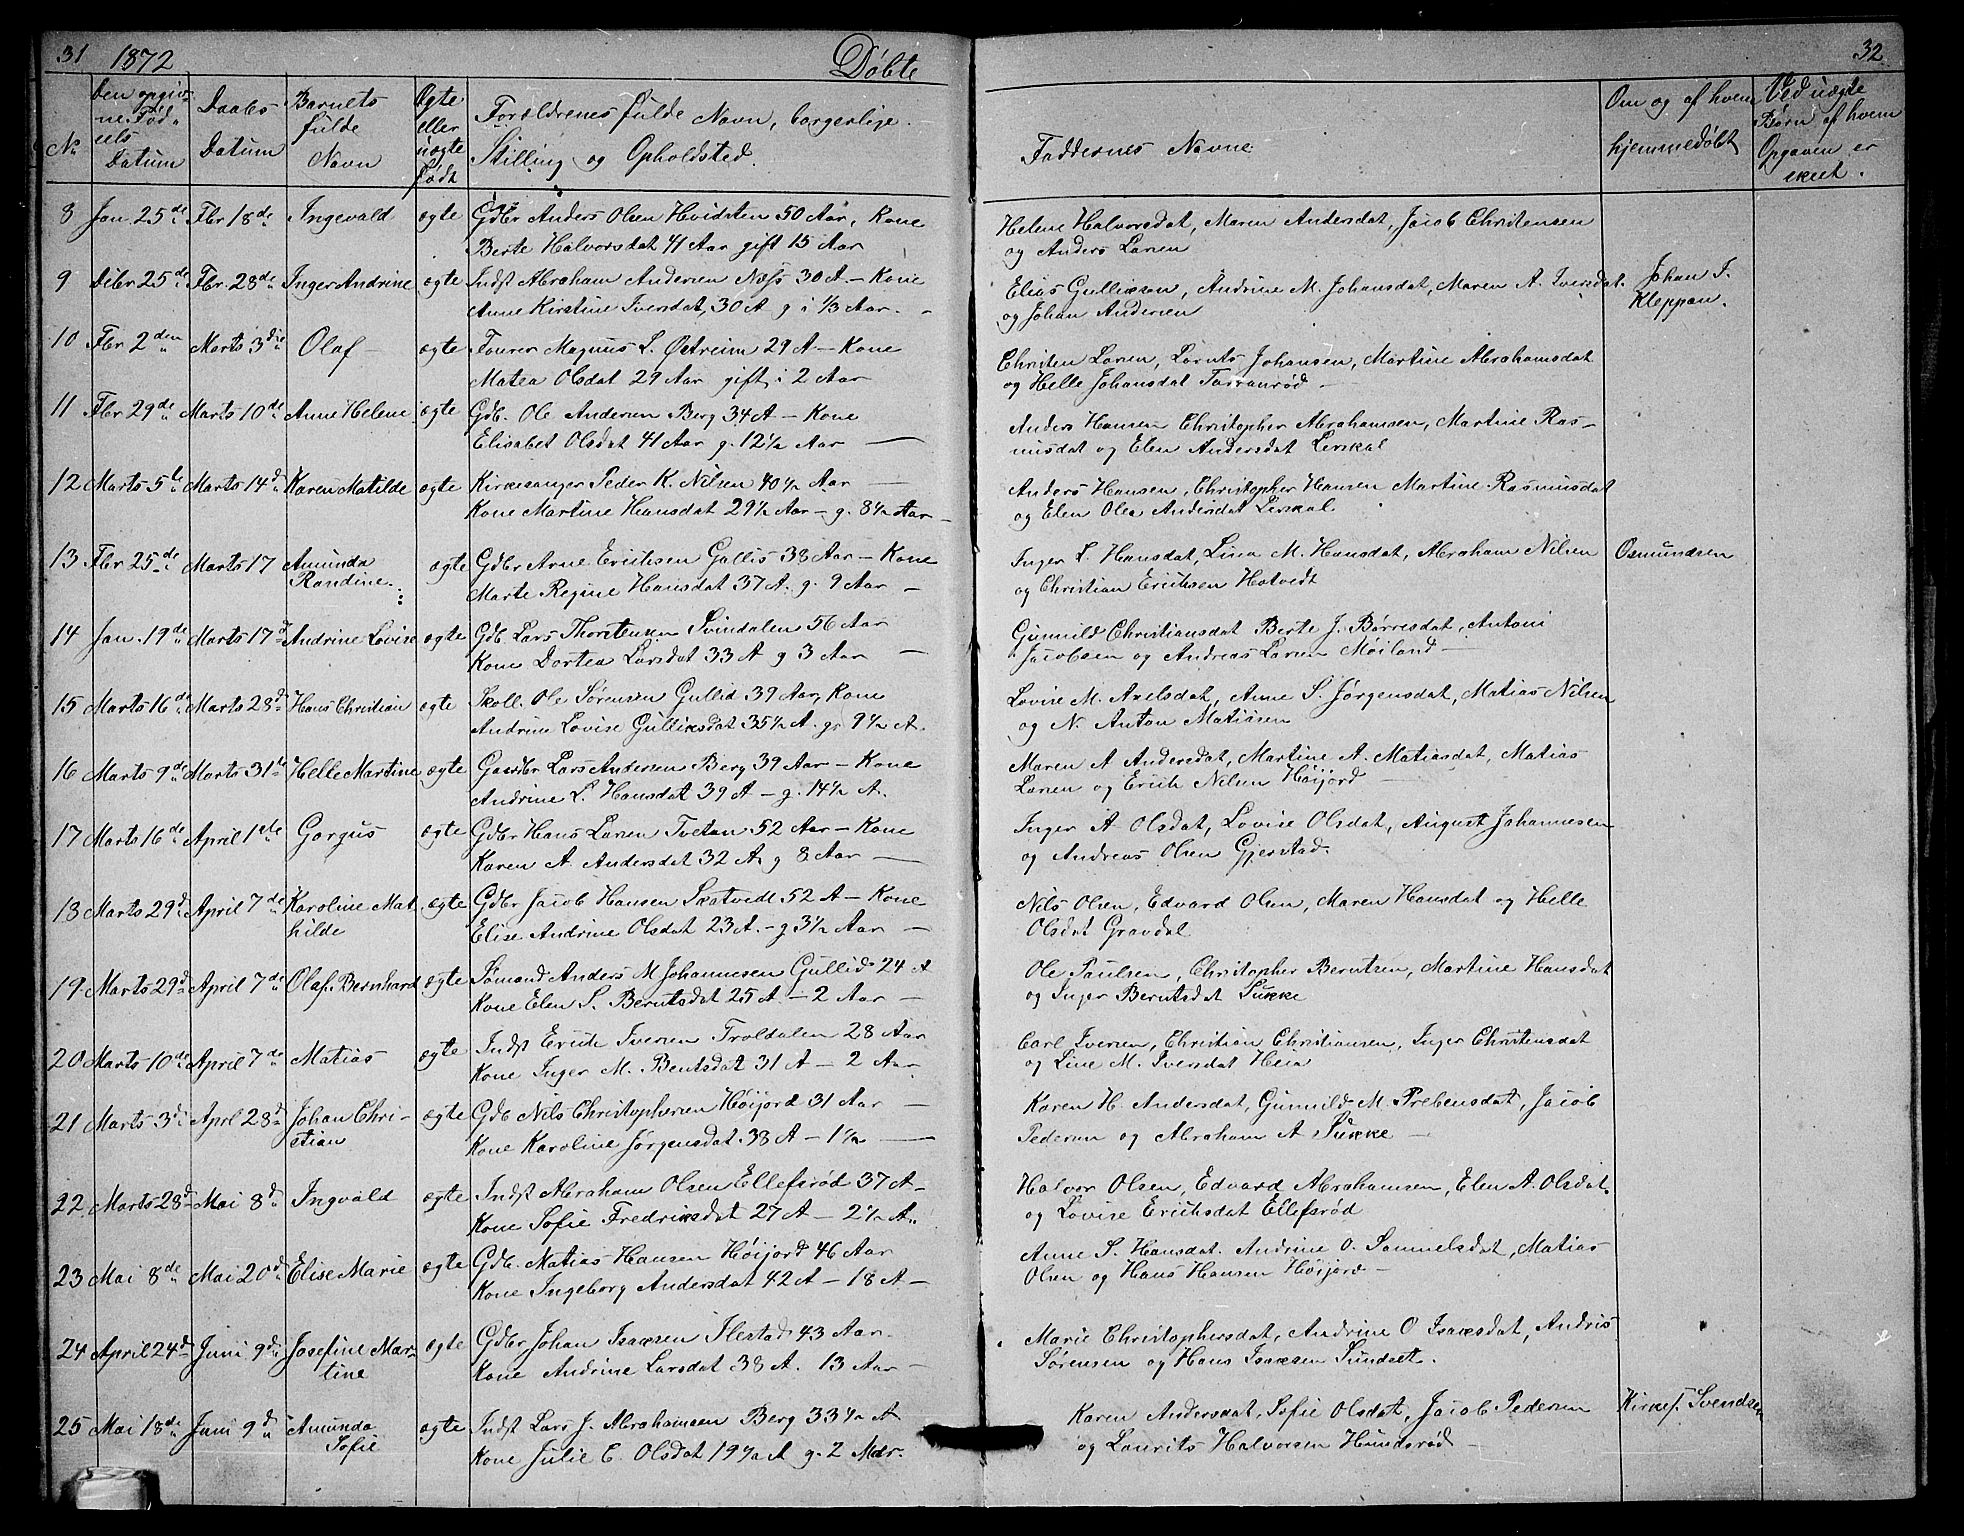 31 1872 Døbte 32
No
Den opgiv-
ne Fød-
sels
Datum
Daabs
Datum
Barnets
fulde
Navn
Ægte
eller
uægte
født
Forældrenes fulde Navn, borgerlige
Stilling og Opholdsted.
Faddernes Navne
Om og af hvem
hjemmedøbt
Ved uægte
Børn af hvem
Opgaven er
skeet.
8 Jan. 25de Fbr 18de Ingevald ægte Gdbr Anders Olsen Hvidsten 50 Aar, Kone
Berte Halvorsdat 41 Aar gift 15 Aar
Helene Halvorsdat, Maren Andersdat, Jacob Christensen
og Anders Larsen
9 Debr 25de Fbr. 28de Inger Andrine ægte Indst Abraham Andersen Næss 30 A - Kone
Anne Kirstine Iversdat, 30 A g i 1/3 Aar. -
Elias Gulliksen, Andrine M. Johansdat, Maren A. Iversdat
og Johan Andersen
Johan J.
Kleppan.
10 Fbr 2den Marts 3die Olaf - ægte Tourer Magnus L. Østreim 29 A - Kone
Matea Olsdat 29 Aar gift i 2 Aar
Christen Larsen, Lornts Johansen, Martine Abrahamsdat
og Helle Johansdat Tarranrød -
11 Fbr 29de Marts 10de Anne Helene ægte Gdb. Ole Andersen Berg 34 A - Kone
Elisabet Olsdat 41 Aar g. 12 1/2 Aar -
Anders Hansen Christopher Abrahamsen, Martine Ras-
musdat og Elen Andersdat Lerskal
12 Marts 5te Marts 14d Karen Matilde ægte Kirkesanger Peder K. Nilsen 40 1/2 Aar -
Kone Martine Hansdat 29 1/2 Aar - g. 8 1/2 Aar -
Anders Hansen, Christopher Hansen Martine Rasmusdat
og Elen Olea Andersdat Lerskal.
13 Fbr 25de Marts 17 Amunda
Randine. ægte Gdbr Arne Erichsen Gallis 38 Aar - Kone
Marte Regine Hansdat 37 A. g. 9 Aar -
Inger L. Hansdat, Lina M. Hansdat, Abraham Nilsen
og Christian Erichsen Hotvedt
Osmundsen
14 Jan. 19de Marts 17d Andrine Lovise ægte Gdb Lars Thorstensen Svindalen 56 Aar
Kone Dortea Larsdat 33 A g 3 Aar -
Gunnild Christiansdat Berte J. Børresdat, Antoni
Jacobsen og Andreas Larsen Møiland -
15 Marts 16de Marts 28d Hans Christian ægte Skoll. Ole Sørensen Gullid 39 Aar, Kone
Andrine Lovise Gulliksdat 35 1/2 A. g. 9 1/2 A.
Lovise M. Axelsdat, Anne S. Jørgensdat, Matias Nilsen
og N. Anton Matiasen
16 Marts 9de Marts 31te Helle Martine ægte Gaardbr Lars Andersen Berg 39 Aar - Kone
Andrine L. Hansdat 39 A - g. 14 1/2 A.
Maren A Andersdat, Martine A. Matiasdat, Matias
Larsen og Erich Nilsen Høijord -
17 Marts 16de April 1ste Gorgus ægte Gdbr Hans Larsen Tvetan 52 Aar - Kone
Karen A. Andersdat 32 A, g 8 Aar -
Inger A. Olsdat, Lovise Olsdat, August Johannesen
og Andreas Olsen Gjerstad.
18 Marts 29d April 7de Karoline Mat
hilde ægte Gdbr Jacob Hansen Skatvedt 52 A - Kone
Elise Andrine Olsdat 23 A. - g 3 1/2 Aar -
Nils Olsen, Edvard Olsen, Maren Hansdat og Helle
Olsdat Gravdal
19 Marts 29d April 7de Olaf Bernhard ægte Sømand Anders M Johannesen Gullid 24 A
Kone Elen S. Berntsdat 25 A - 2 Aar -
Ole Paulsen, Christopher Berntsen, Martine Hansdat
og Inger Berntsdat Sukke
20 Marts 10de April 7de Matias ægte Indst Erich Iversen Troldalen 28 Aar
Kone Inger M. Bentsdat 31 A - 2 Aar
Carl Iversen, Christian Christiansen, Inger Christensdat
og Line M. Iversdat Heia
21 Marts 3d Aprl 28d Johan Chri-
stian ægte Gdb Nils Christophersen Høijord 31 Aar -
Kone Karoline Jørgensdat 38 A - 1 1/2 -
Karen H. Andersdat, Gunnild M. Prebensdat, Jacob
Pedersen og Abraham A Sukke -
22 Marts 28d Mai 8d Ingvald ægte Indst Abraham Olsen Ellefsrød 37 A -
Kone Sofie Fredriksdat 27 A - 2 1/2 A.
Halvor Olsen, Edvard Abrahamsen, Elen A. Olsdat.
og Lovise Erichsdat Ellefsrød
23 Mai 8de Mai 20d Elise Marie ægte Gdb. Matias Hansen Høijord 46 Aar
Kone Ingeborg Andersdat 42 A - 18 A -
Anne S. Hansdat. Andrine O. Samuelsdat, Matias
Olsen og Hans Hansen Høijord -
24 April 24d Juni 9d Josefine Mar-
tine ægte Gdbr Johan Isaksen Ilestad 43 Aar.
Kone Andrine Larsdat 38 A. 13 Aar -
Marie Christophersdat, Andrine O Isaksdat, Andris
Sørensen og Hans Isaksen Sundset.
25 Mai 18de Juni 9d Amunda
Sofie ægte Indst Lars J. Abrahamsen Berg 33 1/2 A
Kone Julie E. Olsdat 19 1/2 A g. 2 Mdr.
Karen Andersdat, Sofie Olsdat, Jacob Pedersen
og Laurits Halvorsen Hundsrød -
Kirkes. Svendsen